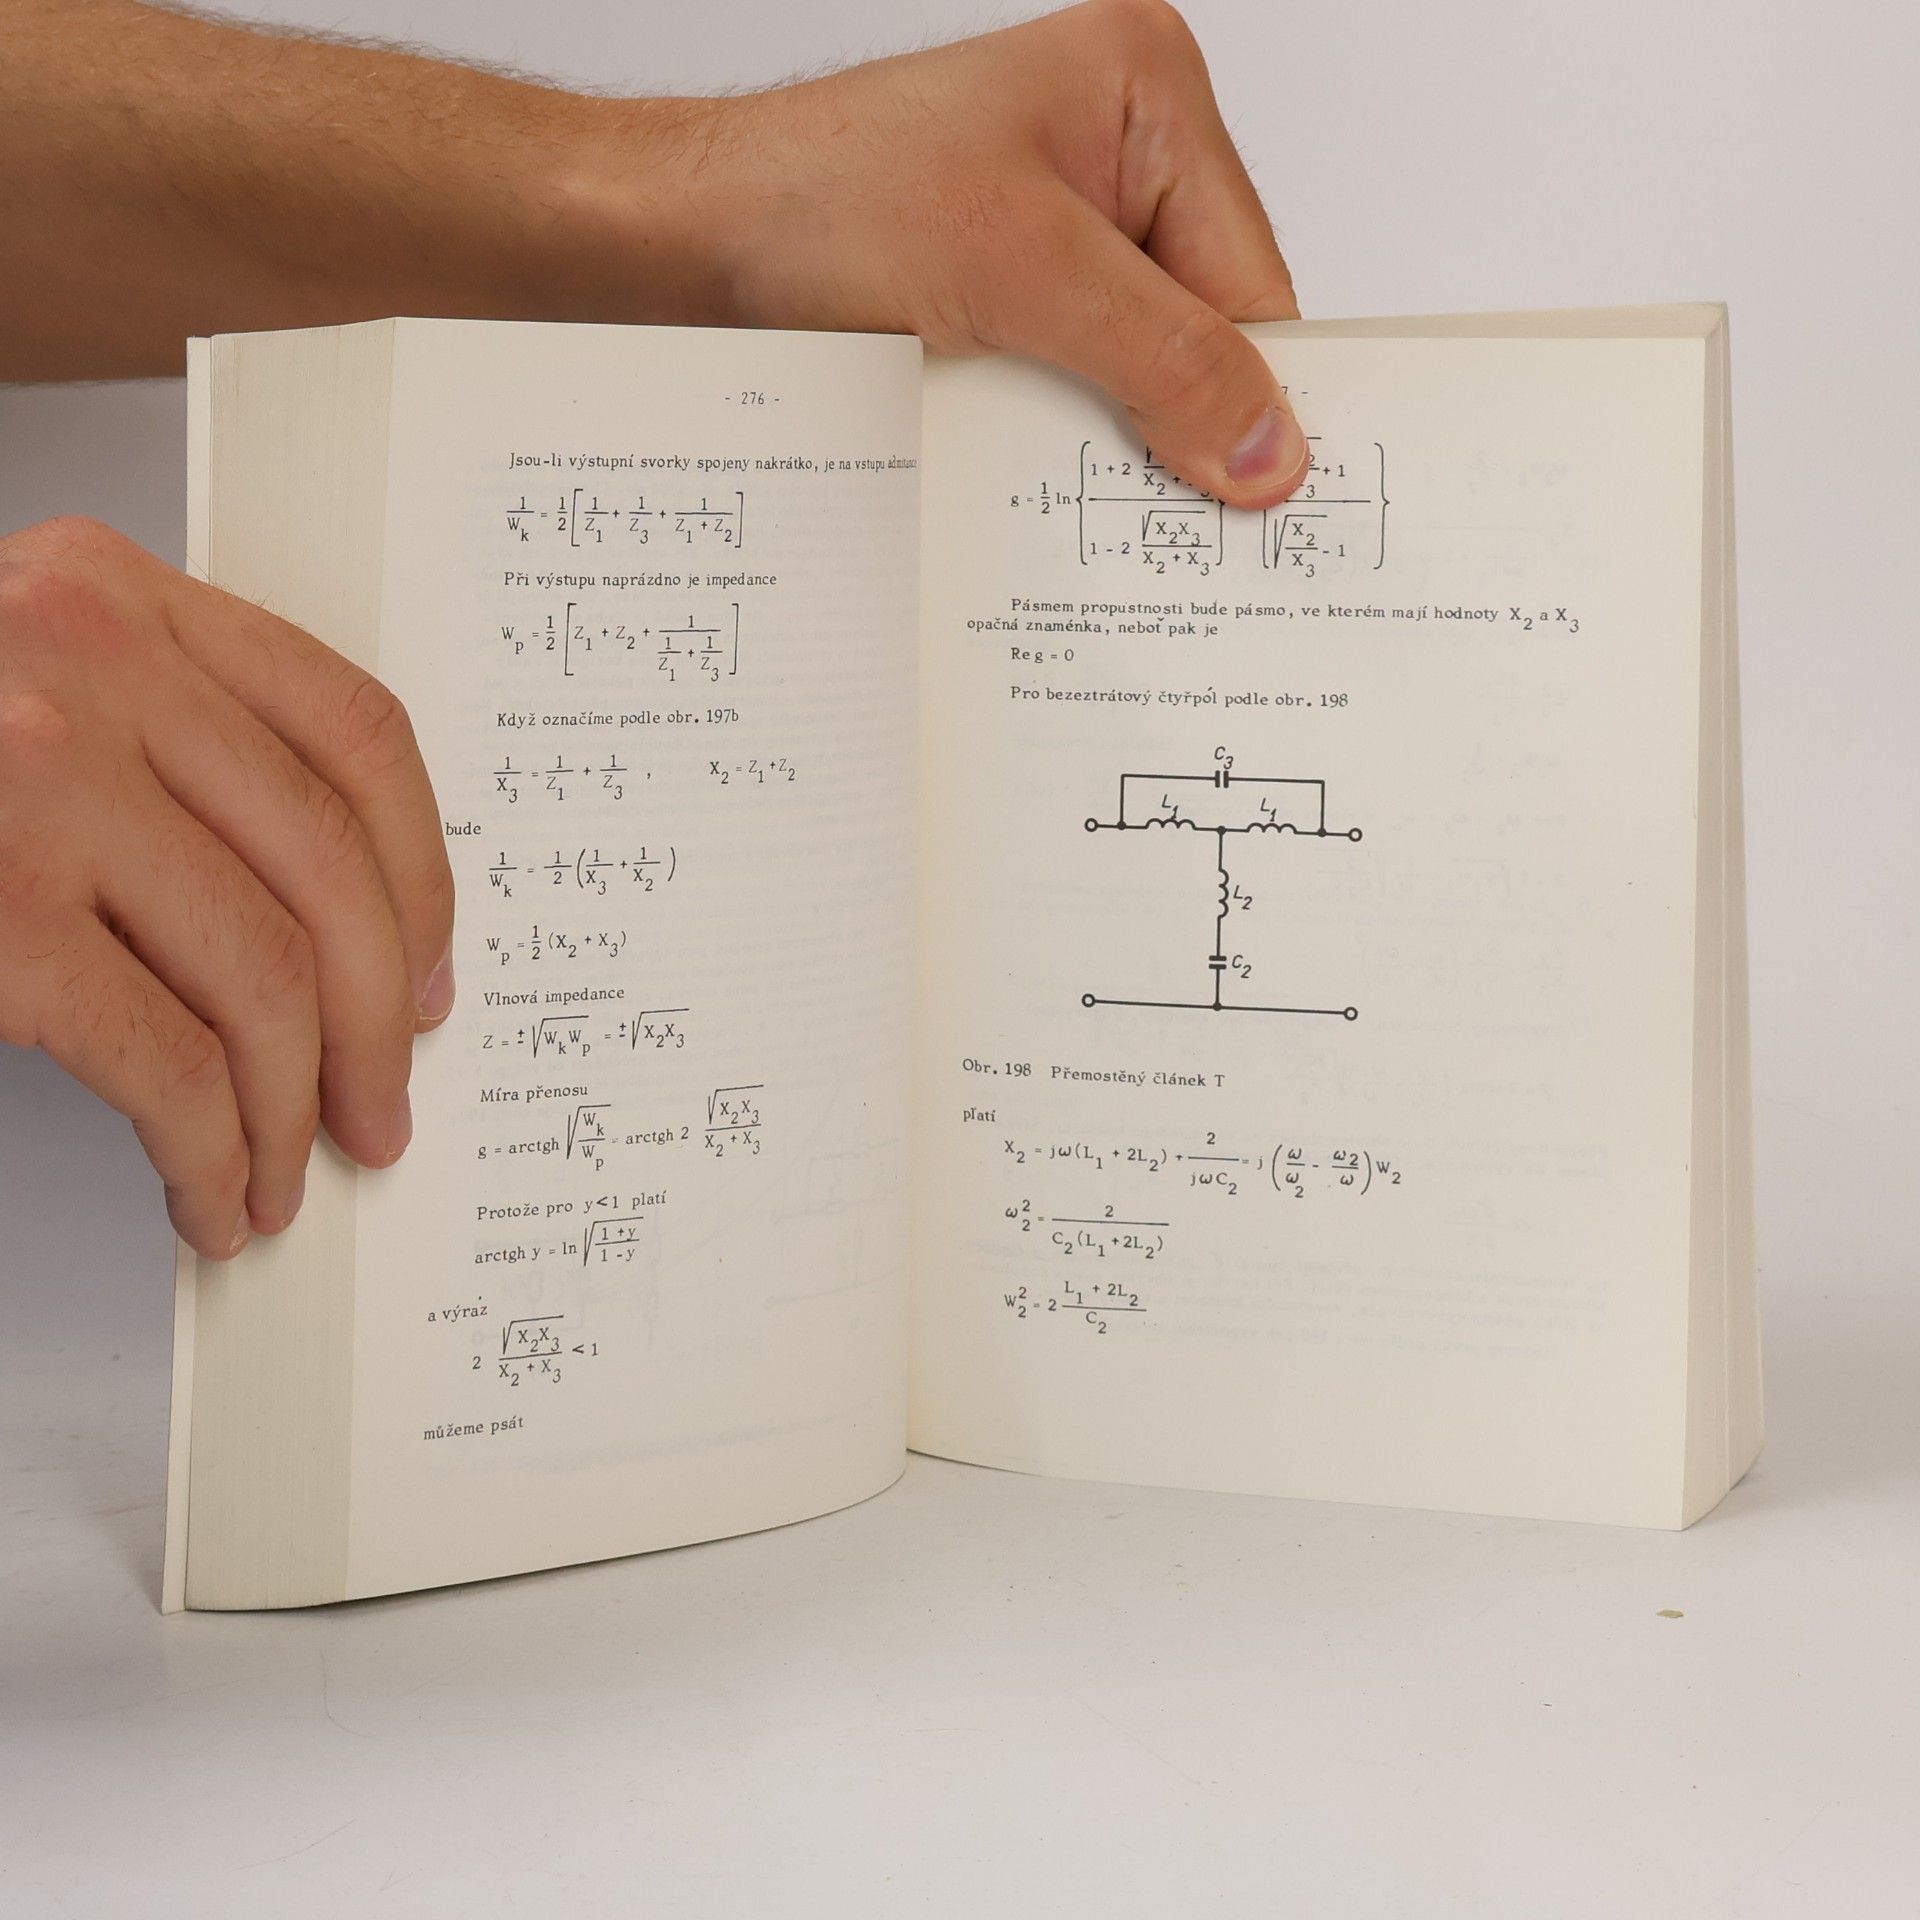 - 276 -
Jsou-li výstupní svorky spojeny nakrátko, je na vstupu admitance
1/W_k = 1/2 [ 1/Z_1 + 1/Z_3 + 1/(Z_1 + Z_2) ]
Při výstupu naprázdno je impedance
W_p = 1/2 [ Z_1 + Z_2 + 1/(1/Z_1 + 1/Z_3) ]
Když označíme podle obr. 197b
1/X_3 = 1/Z_1 + 1/Z_3 , X_2 = Z_1 + Z_2
bude
1/W_k = 1/2 ( 1/X_3 + 1/X_2 )
W_p = 1/2 (X_2 + X_3)
Vlnová impedance
Z = ± √(W_k W_p) = ± √(X_2 X_3)
Míra přenosu
g = arctgh √(W_k/W_p) = arctgh 2 √(X_2 X_3)/(X_2 + X_3)
Protože pro y < 1 platí
arctgh y = ln √((1 + y)/(1 - y))
a výraz
2 √(X_2 X_3)/(X_2 + X_3) < 1
můžeme psát
7 -
g = 1/2 ln { 1 + 2 √ X_2 + 3 + 1
1 - 2 √(X_2 X_3)/(X_2 + X_3) } √(X_2/X_3) - 1 }
Pásmem propustnosti bude pásmo, ve kterém mají hodnoty X_2 a X_3
opačná znaménka, neboť pak je
Re g = 0
Pro bezeztrátový čtyřpól podle obr. 198
C_3
L_1 L_1
L_2
C_2
Obr. 198 Přemostěný článek T
platí
X_2 = jω(L_1 + 2L_2) + 2/(jωC_2) = j ( ω/ω_2 - ω_2/ω ) W_2
ω_2^2 = 2/(C_2(L_1 + 2L_2))
W_2^2 = 2 (L_1 + 2L_2)/C_2